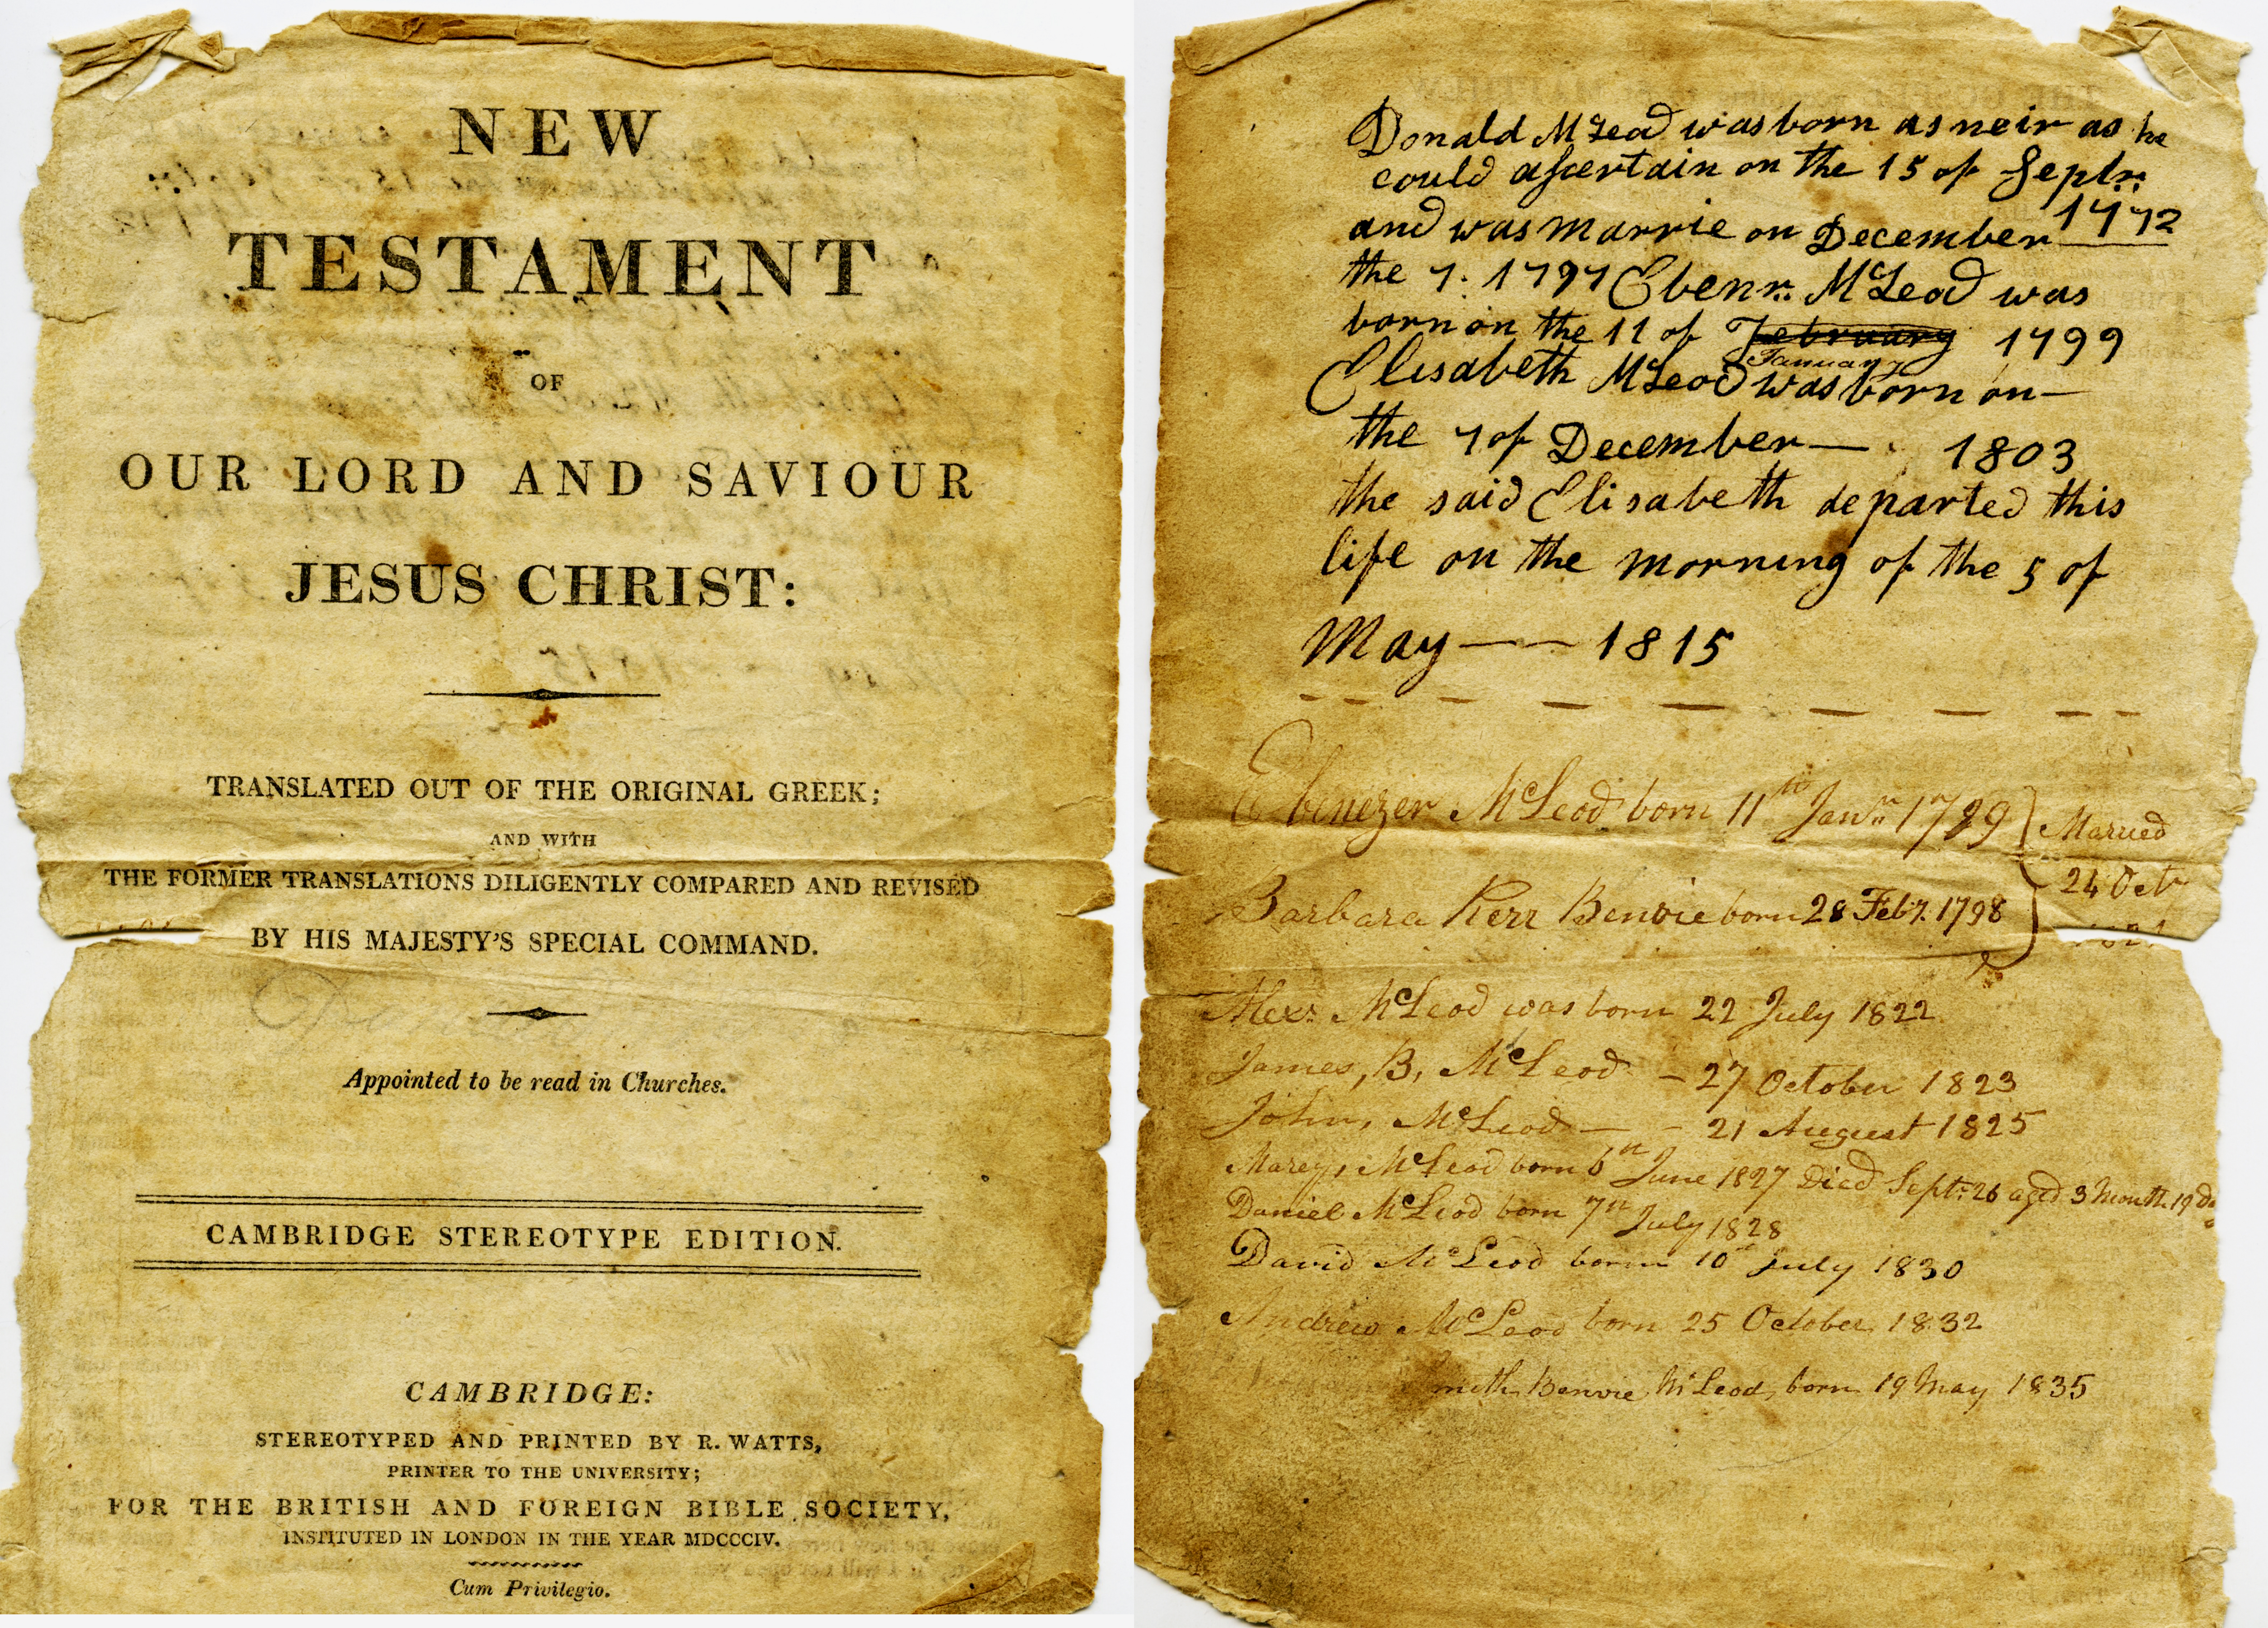 NEW
TESTAMENT
OF
OUR LORD AND SAVIOUR
JESUS CHRIST:
TRANSLATED OUT OF THE ORIGINAL GREEK;
AND WITH
THE FORMER TRANSLATIONS DILIGENTLY COMPARED AND REVISED
BY HIS MAJESTY'S SPECIAL COMMAND.
Appointed to be read in Churches.
CAMBRIDGE STEREOTYPE EDITION.
CAMBRIDGE:
STEREOTYPED AND PRINTED BY R. WATTS,
PRINTER TO THE UNIVERSITY;
FOR THE BRITISH AND FOREIGN BIBLE SOCIETY,
INSTITUTED IN LONDON IN THE YEAR MDCCCIV.
Cum Privilegio.
Donald McLeod was born as neir as he
could aſcertain on the 15 of Septr.
1772
and was marrie on December
the 7. 1797 Ebenr. McLeod was
born on the 11 of February 1799
January
Elisabeth McLeod was born on —
the 7 of December — 1803
the said Elisabeth departed this
life on the morning of the 5 of
May — — 1815
Ebenezer McLeod born 11th Janr. 1799
Married
24 Oct
1821
Barbara Kerr Benvie born 28 Feby. 1798
Alexr. McLeod was born 22 July 1822
James, B, McLeod — 27 October 1823
John, McLeod — - 21 August 1825
Marey, McLeod born 6th June 1827 Died Sept. 26 aged 3 month. 19 Da
Daniel McLeod born 7th July 1828
David McLeod born 10 July 1830
Andrew McLeod born 25 October 1832
Benvie McLeod, born 19 May 1835